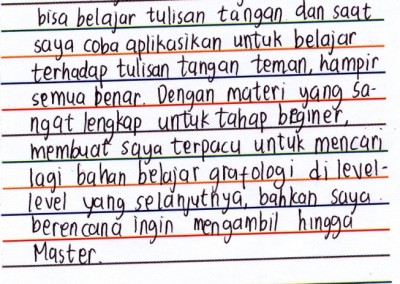 bisa belajar tulisan tangan dan saat
saya coba aplikasikan untuk belajar
terhadap tulisan tangan teman, hampir
semua benar. Dengan materi yang sa-
ngat lengkap untuk tahap beginer,
membuat saya terpacu untuk mencari
lagi bahan belajar grafologi di level-
level yang selanjutnya, bahkan saya
berencana ingin mengambil hingga
Master.